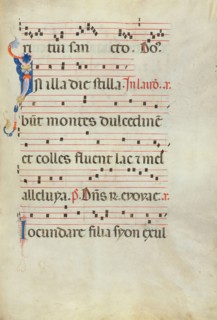 ri tui san cto. Do⁊.
In illa die stilla. In laud̄. ar.
būt montes dulcedinē
et colles fluent lac ⁊ mel
alleluya. p̄.
Iocundare filia syon ⁊ exul